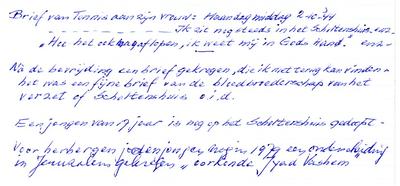 Brief van Tunnis aan zijn vrouw: Maandag middag 2-10-'44
Ik zit nog steeds in het Scholtenshuis enz-
"Hoe het ook mag aflopen, ik weet mij in Gods hand." enz-
Nà de bevrijding een brief gekregen, die ik niet terug kan vinden-
het was een fijne brief van de bloedbroederschap van het
verzet of Scholtenshuis o.i.d.
Een jongen van 9 jaar is nog op het Scholtenshuis gedoopt-
Voor herbergen joden jongen kregen 1979 een onderscheiding
in Jeruzalem gekregen "oorkonde Yad Vashem"